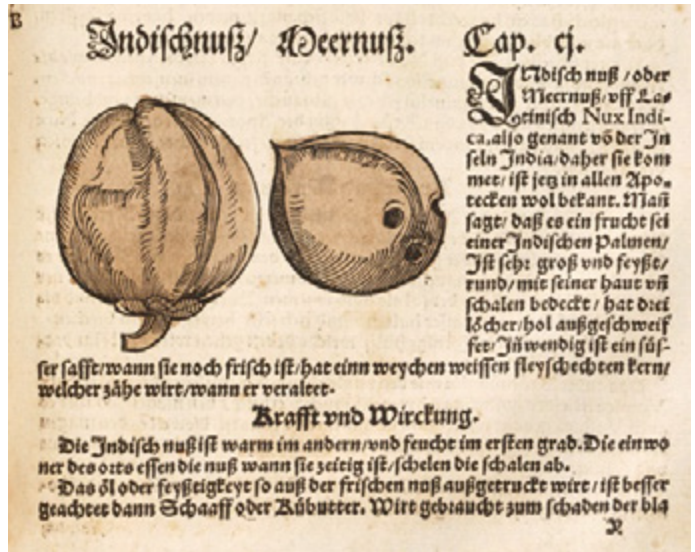 B
Indischnuß/ Meernuß. Cap. cj.
INdisch nuß / oder
Meernuß/vff La⸗
teinisch Nux Indi-
ca, also genant võ der In
seln India/daher sie kom
met/ ist jetz in allen Apo⸗
tecken wol bekant. Mañ
sagt/ daß es ein frucht sei
einer Indischen Palmen/
Ist sehr groß vnd feyßt/
rund/mit seiner haut vñ
schalen bedeckt / hat drei
löcher/hol außgeschweif
fet/Iñwendig ist ein süs-
ser safft/wann sie noch frisch ist/hat einn weychen weissen fleyschechten kern/
welcher zähe wirt/wann er veraltet.
Krafft vnd Wirckung.
Die Indisch nuß ist warm im andern/vnd feucht im ersten grad. Die einwo
ner des orts essen die nuß wann sie zeitig ist/schelen die schalen ab.
Das öl oder feyßtigkeyt so auß der frischen nuß außgetruckt wirt / ist besser
geachtet dann Schaaff oder Kübutter. Wirt gebraucht zum schaden der bla
R